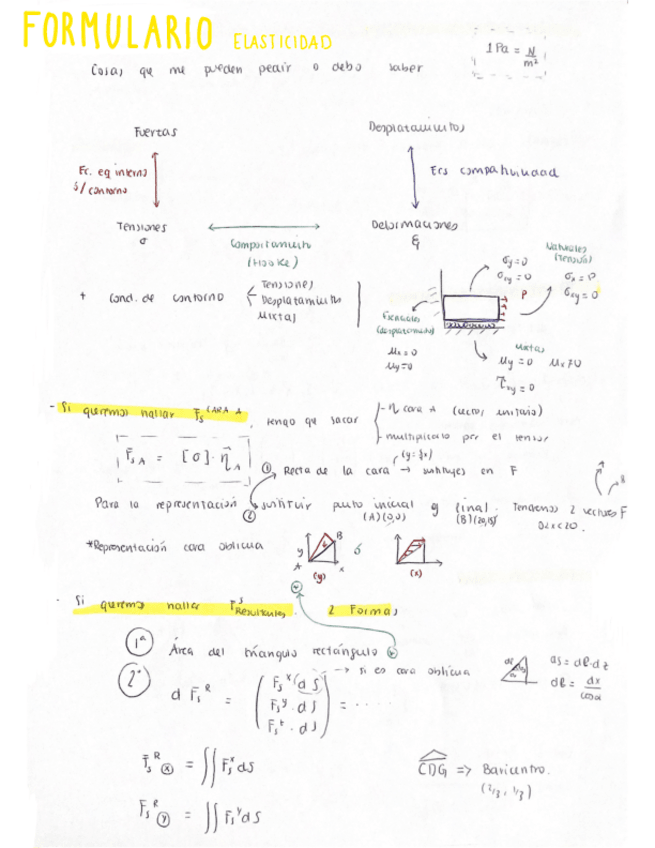 FORMULARIO ELASTICIDAD
1 Pa = N/m²
Cosas que me pueden pedir o debo saber
Fuerzas
Desplazamientos
Ec. eq interno
s/ contorno
Ecs compatibilidad
Tensiones
σ
Comportamiento
(Hooke)
Deformaciones
+ Cond. de contorno
Tensiones
Desplazamiento
Mixtas
σy=0
σxy=0
Naturales
(Tensión)
σx=P
σxy=0
P
Esenciales
(desplazamiento)
Mx=0
My=0
Mixtas
My=0 Mx≠0
τxy=0
- Si queremos hallar Fs CARA A, tengo que sacar
- η cara A (vector unitario)
- multiplicarlo por el tensor
F̄s A = [σ]·η⃗A
① Recta de la cara → sustituyes en F
Para la representación ② sustituir punto inicial y final. Tendremos 2 vectores F
(A)(0,0)
0<x<20.
*Representación cara oblicua
y
A
B
x
(y)
ó
(x)
- Si queremos hallar Fs Resultantes. 2 Formas
1ª Área del triángulo rectángulo
2ª
d F̄s R = ( Fs x (dS) Fs y · dS Fs z · dS ) = ....
→ si es cara oblicua
dS = dl·dz
dl = dx/cosα
F̄s R (x) = ∬ Fs x dS
F̄s R (y) = ∬ Fs y dS
CDG => Baricentro.
(2/3, 1/3)